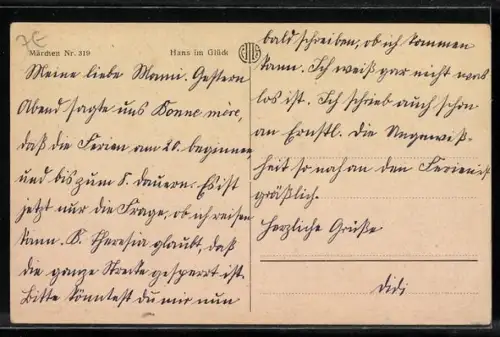 7€
Märchen Nr. 319 Hans im Glück
Meine liebe Mami. Gestern
Abend sagte uns Bonne mère,
daß die Ferien am 20. beginnen
und bis zum 8. dauern. Es ist
jetzt nur die Frage, ob ich reisen
kann. K. Theresia glaubt, daß
die ganze Strecke gesperrt ist.
Bitte könntest du mir nun
bald schreiben, ob ich kommen
kann. Ich weiß gar nicht was
los ist. Ich schrieb auch schon
an Ernstl. Die Ungewiß-
heit so nah an den Ferien ist
gräßlich.
Herzliche Grüße
Didi